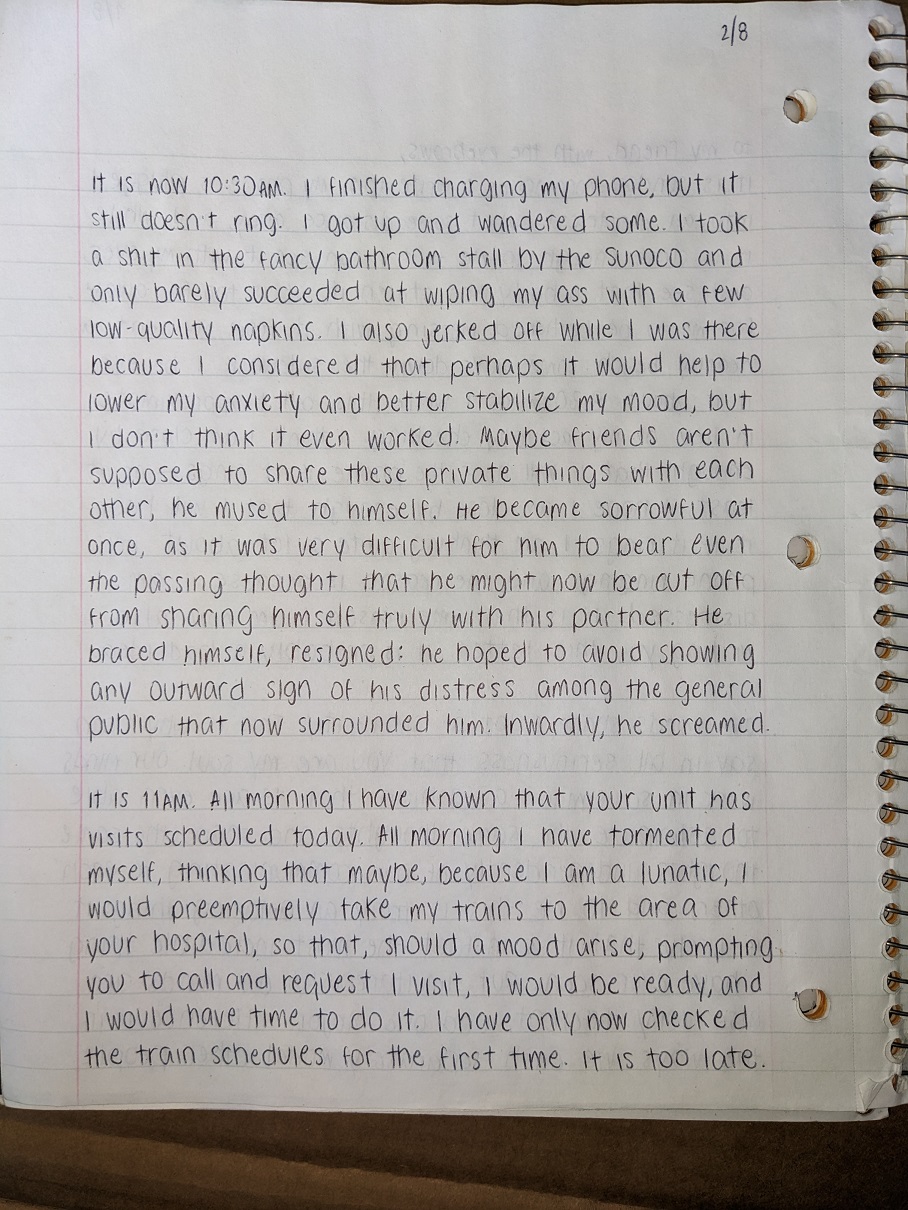 2/8
It is now 10:30AM. I finished charging my phone, but it
still doesn't ring. I got up and wandered some. I took
a shit in the fancy bathroom stall by the Sunoco and
only barely succeeded at wiping my ass with a few
low-quality napkins. I also jerked off while I was there
because I considered that perhaps it would help to
lower my anxiety and better stabilize my mood, but
I don't think it even worked. Maybe friends aren't
supposed to share these private things with each
other, he mused to himself. He became sorrowful at
once, as it was very difficult for him to bear even
the passing thought that he might now be cut off
from sharing himself truly with his partner. He
braced himself, resigned: he hoped to avoid showing
any outward sign of his distress among the general
public that now surrounded him. Inwardly, he screamed.
It is 11AM. All morning I have known that your unit has
visits scheduled today. All morning I have tormented
myself, thinking that maybe, because I am a lunatic, I
would preemptively take my trains to the area of
your hospital, so that, should a mood arise, prompting
you to call and request I visit, I would be ready, and
I would have time to do it. I have only now checked
the train schedules for the first time. It is too late.